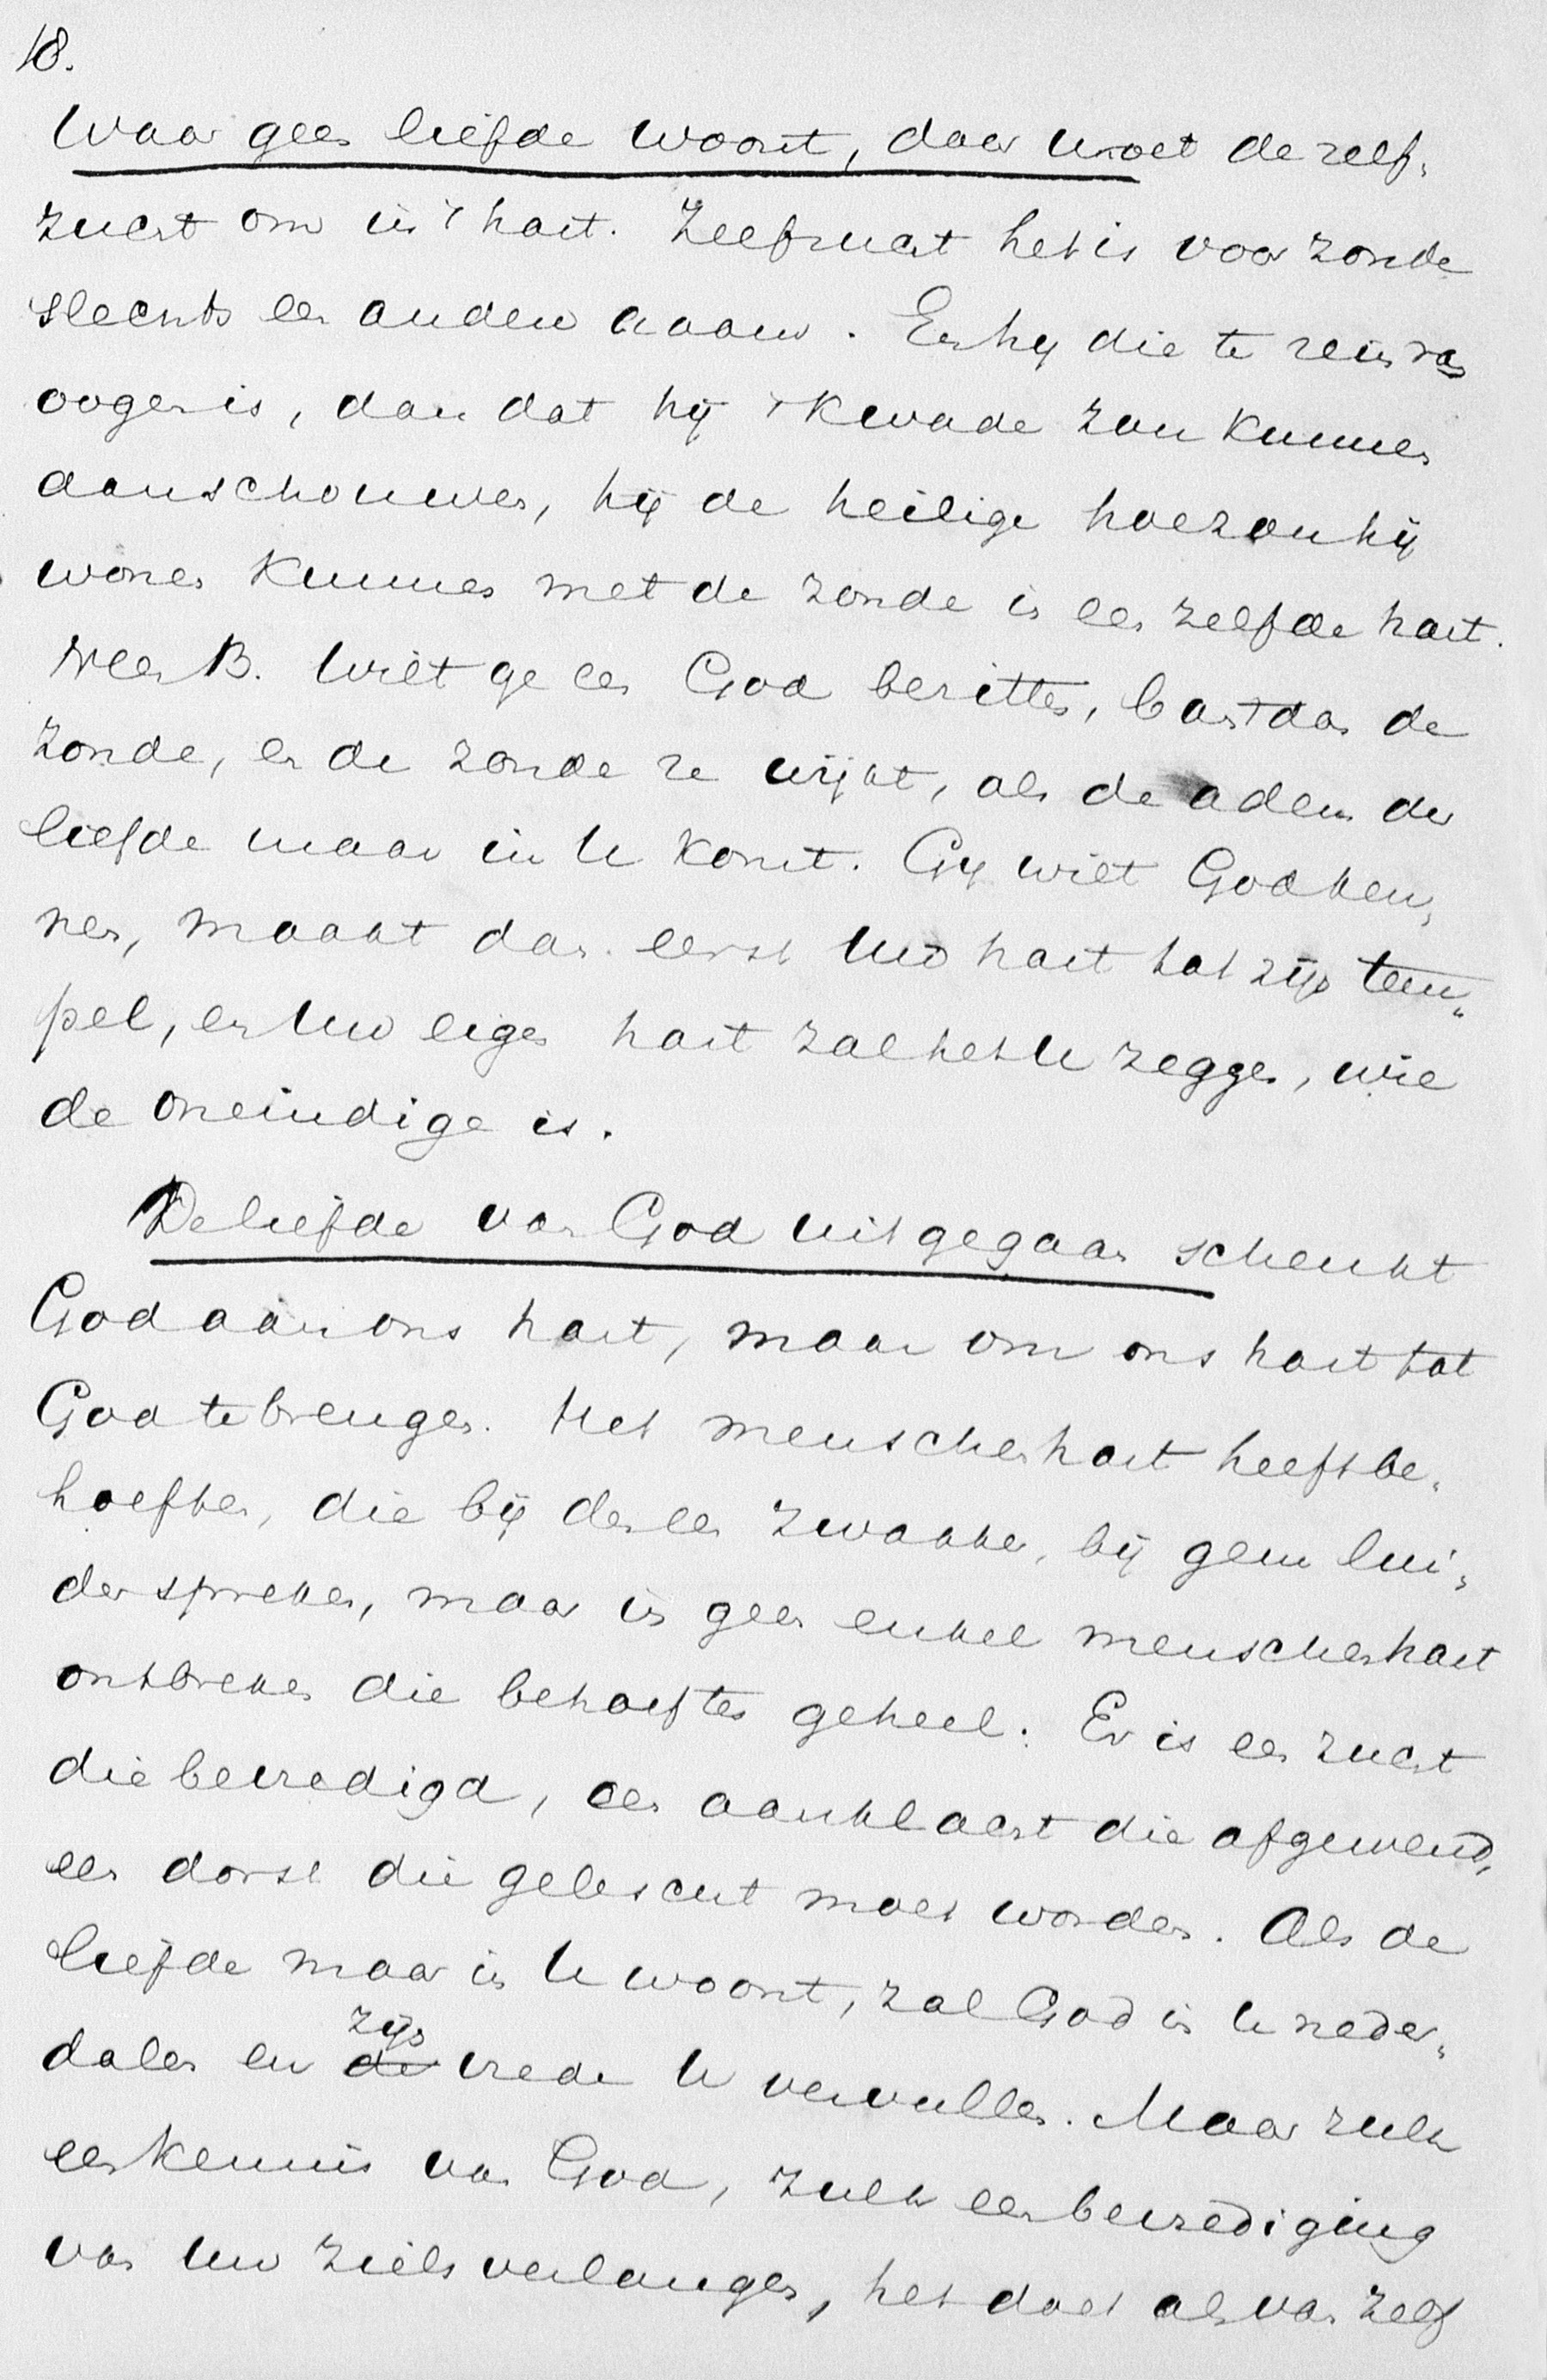 18.
Waar geen liefde woont, daar woet de zelf-
zucht om in 't hart. Zelfzucht het is voor zonde
slechts een anderen naam. En hij die te rein van
oogen is, dan dat hij 't kwade zou kunnen
aanschouwen, hij de heilige hoe zou hij
wonen kunnen met de zonde in een zelfde hart.
Neen B. wilt ge een God bezitten, bant dan de
zonde, en de zonde ze wijkt, als de adem der
liefde maar in U komt. Gij wilt God ken-
nen, maakt dan eerst Uw hart tot zijn tem-
pel, en Uw eigen hart zal het U zeggen, wie
de oneindige is.
De liefde van God uitgegaan schenkt
God aan ons hart, maar om ons hart tot
God te brengen. Het menschenhart heeft be-
hoeften, die bij den een zwakker, bij gene lui-
der spreken, maar in geen enkel menschenhart
ontbreken die behoeften geheel. Er is een zucht
die bevredigd, een aanklacht die afgewend,
een dorst die gelescht moet worden. Als de
liefde maar in U woont, zal God in U neder-
dalen en zijn vrede U vervullen. Maar zulk
een kennis van God, zulk een bevrediging
van Uw ziels verlangen, het doet als van zelf